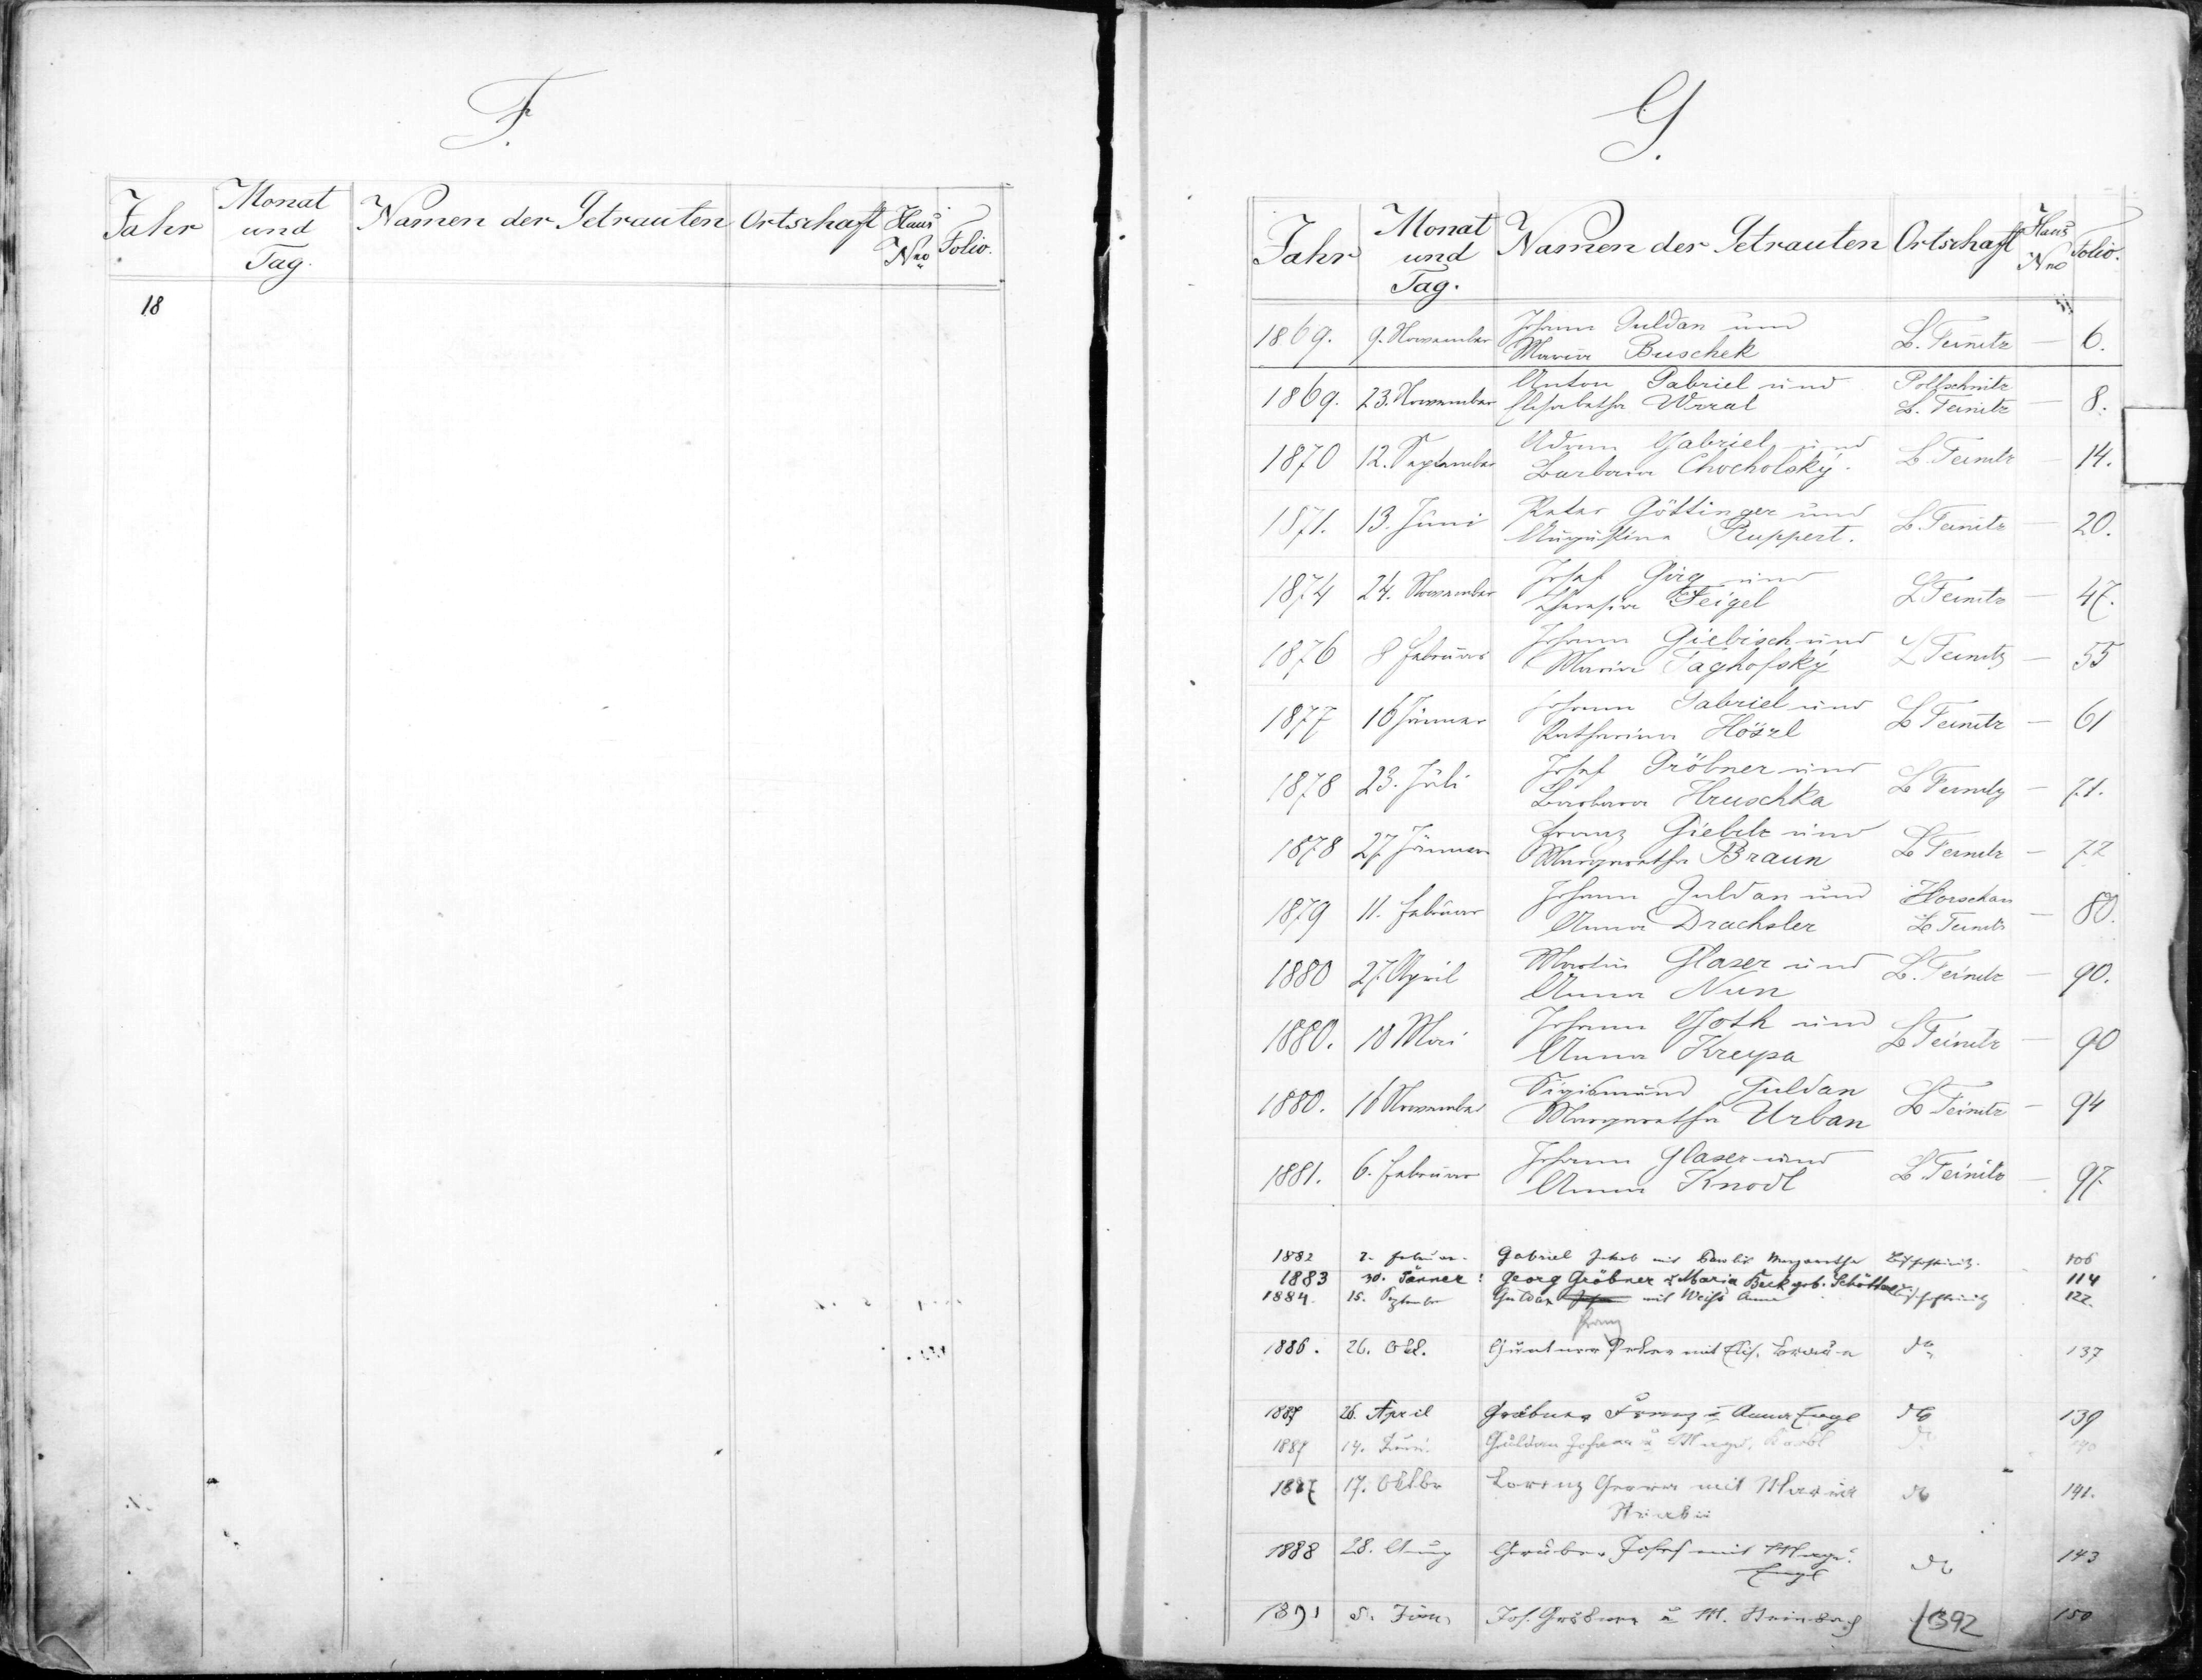 F.
Jahr Monat und Tag. Namen der Getrauten Ortschaft Haus Nro Folio.
18
G.
Jahr Monat und Tag. Namen der Getrauten Ortschaft Haus Nro Folio.
1869. 9. November Johann Guldan und B. Teinitz — 6.
Maria Buschek
1869. 23. November Anton Gabriel und Pollschnitz — 8.
Elisabetha Wrral B. Teinitz
1870 12. September Adam Gabriel und B. Teinitz — 14.
Barbara Chocholský.
1871. 13. Juni Peter Göttinger und B. Teinitz — 20.
Augustina Ruppert.
1874 24. November Josef Girg und B Teinitz — 47.
Theresia Feigel
1876 8 Februar Johann Giebisch und B Teinitz — 55
Maria Taghofský
1877 16 Jänner Johann Gabriel und B Teinitz — 61
Katharina Höszl
1878 23. Juli Josef Gröbner und B Teinitz — 71.
Barbara Hruschka
1878 27. Jänner Franz Giebitz und B Teinitz — 77
Margaretha Braun
1879 11. Februar Johann Guldan und Horschau — 80.
Anna Drachsler B Teinitz
1880 27. April Martin Glaser und B. Teinitz — 90.
Anna Nun
1880. 10 Mai Johann Goth und B Teinitz — 90
Anna Kreysa
1880. 16 November Sigismund Guldan B Teinitz — 94
Margaretha Urban
1881. 6. Februar Johann Glaser und B. Teinitz — 97.
Anna Knodl
1882 Februar Gabriel Jakob mit Margaretha Bischofteinitz 106
1883 30. Jänner: Georg Gröbner & Maria Beck geb. Schötterl Bischofteinitz 114
1884. 15. September Guldan mit Weiß Anna 122.
Franz
1886. 26. Okt. Güntner Peter mit Elis. Braun do 137
1887 26. April Gröbner Franz u Anna Engl do 139
1887 14. Juni Guldan Johann u. Marg. do 140
1887 17. Oktbr Lorenz mit Maria do 141.
1888 28. Aug Josef mit Marg. do 143
Engl
1891 5. Jos. Gröbner u M. 150
392